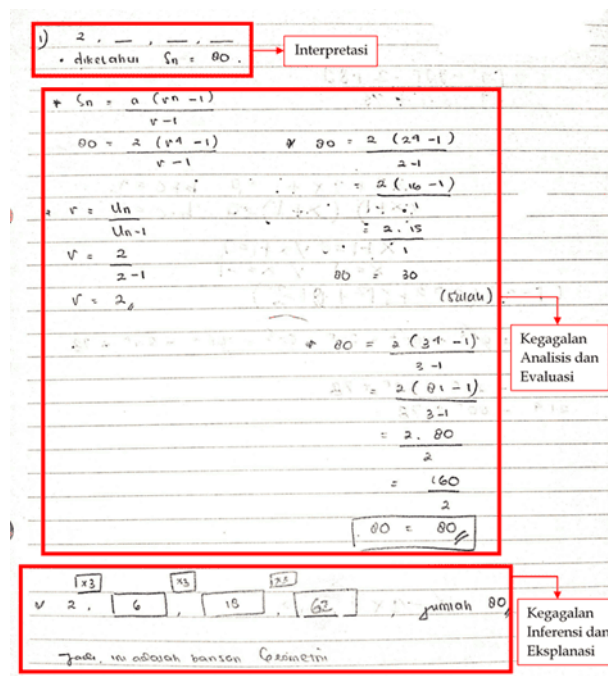 1) 2 , __ , __ , __
• diketahui Sn = 80 .
Interpretasi
* Sn = a (rn -1)
r -1
80 = 2 (r4 -1)
r -1
* 80 = 2 (24 -1)
2-1
= 2 (16 -1)
1
• r = Un
Un-1
= 2 . 15
1
r = 2
2-1
80 = 30
r = 2
(salah)
* 80 = 2 (34 -1)
3 -1
= 2 (81 -1)
3-1
= 2 . 80
2
= 160
2
80 = 80
Kegagalan
Analisis dan
Evaluasi
x3 x3 x3
v 2 , 6 , 18 , 62 , jumlah 80
Jadi, ini adalah barisan Geometri
Kegagalan
Inferensi dan
Eksplanasi